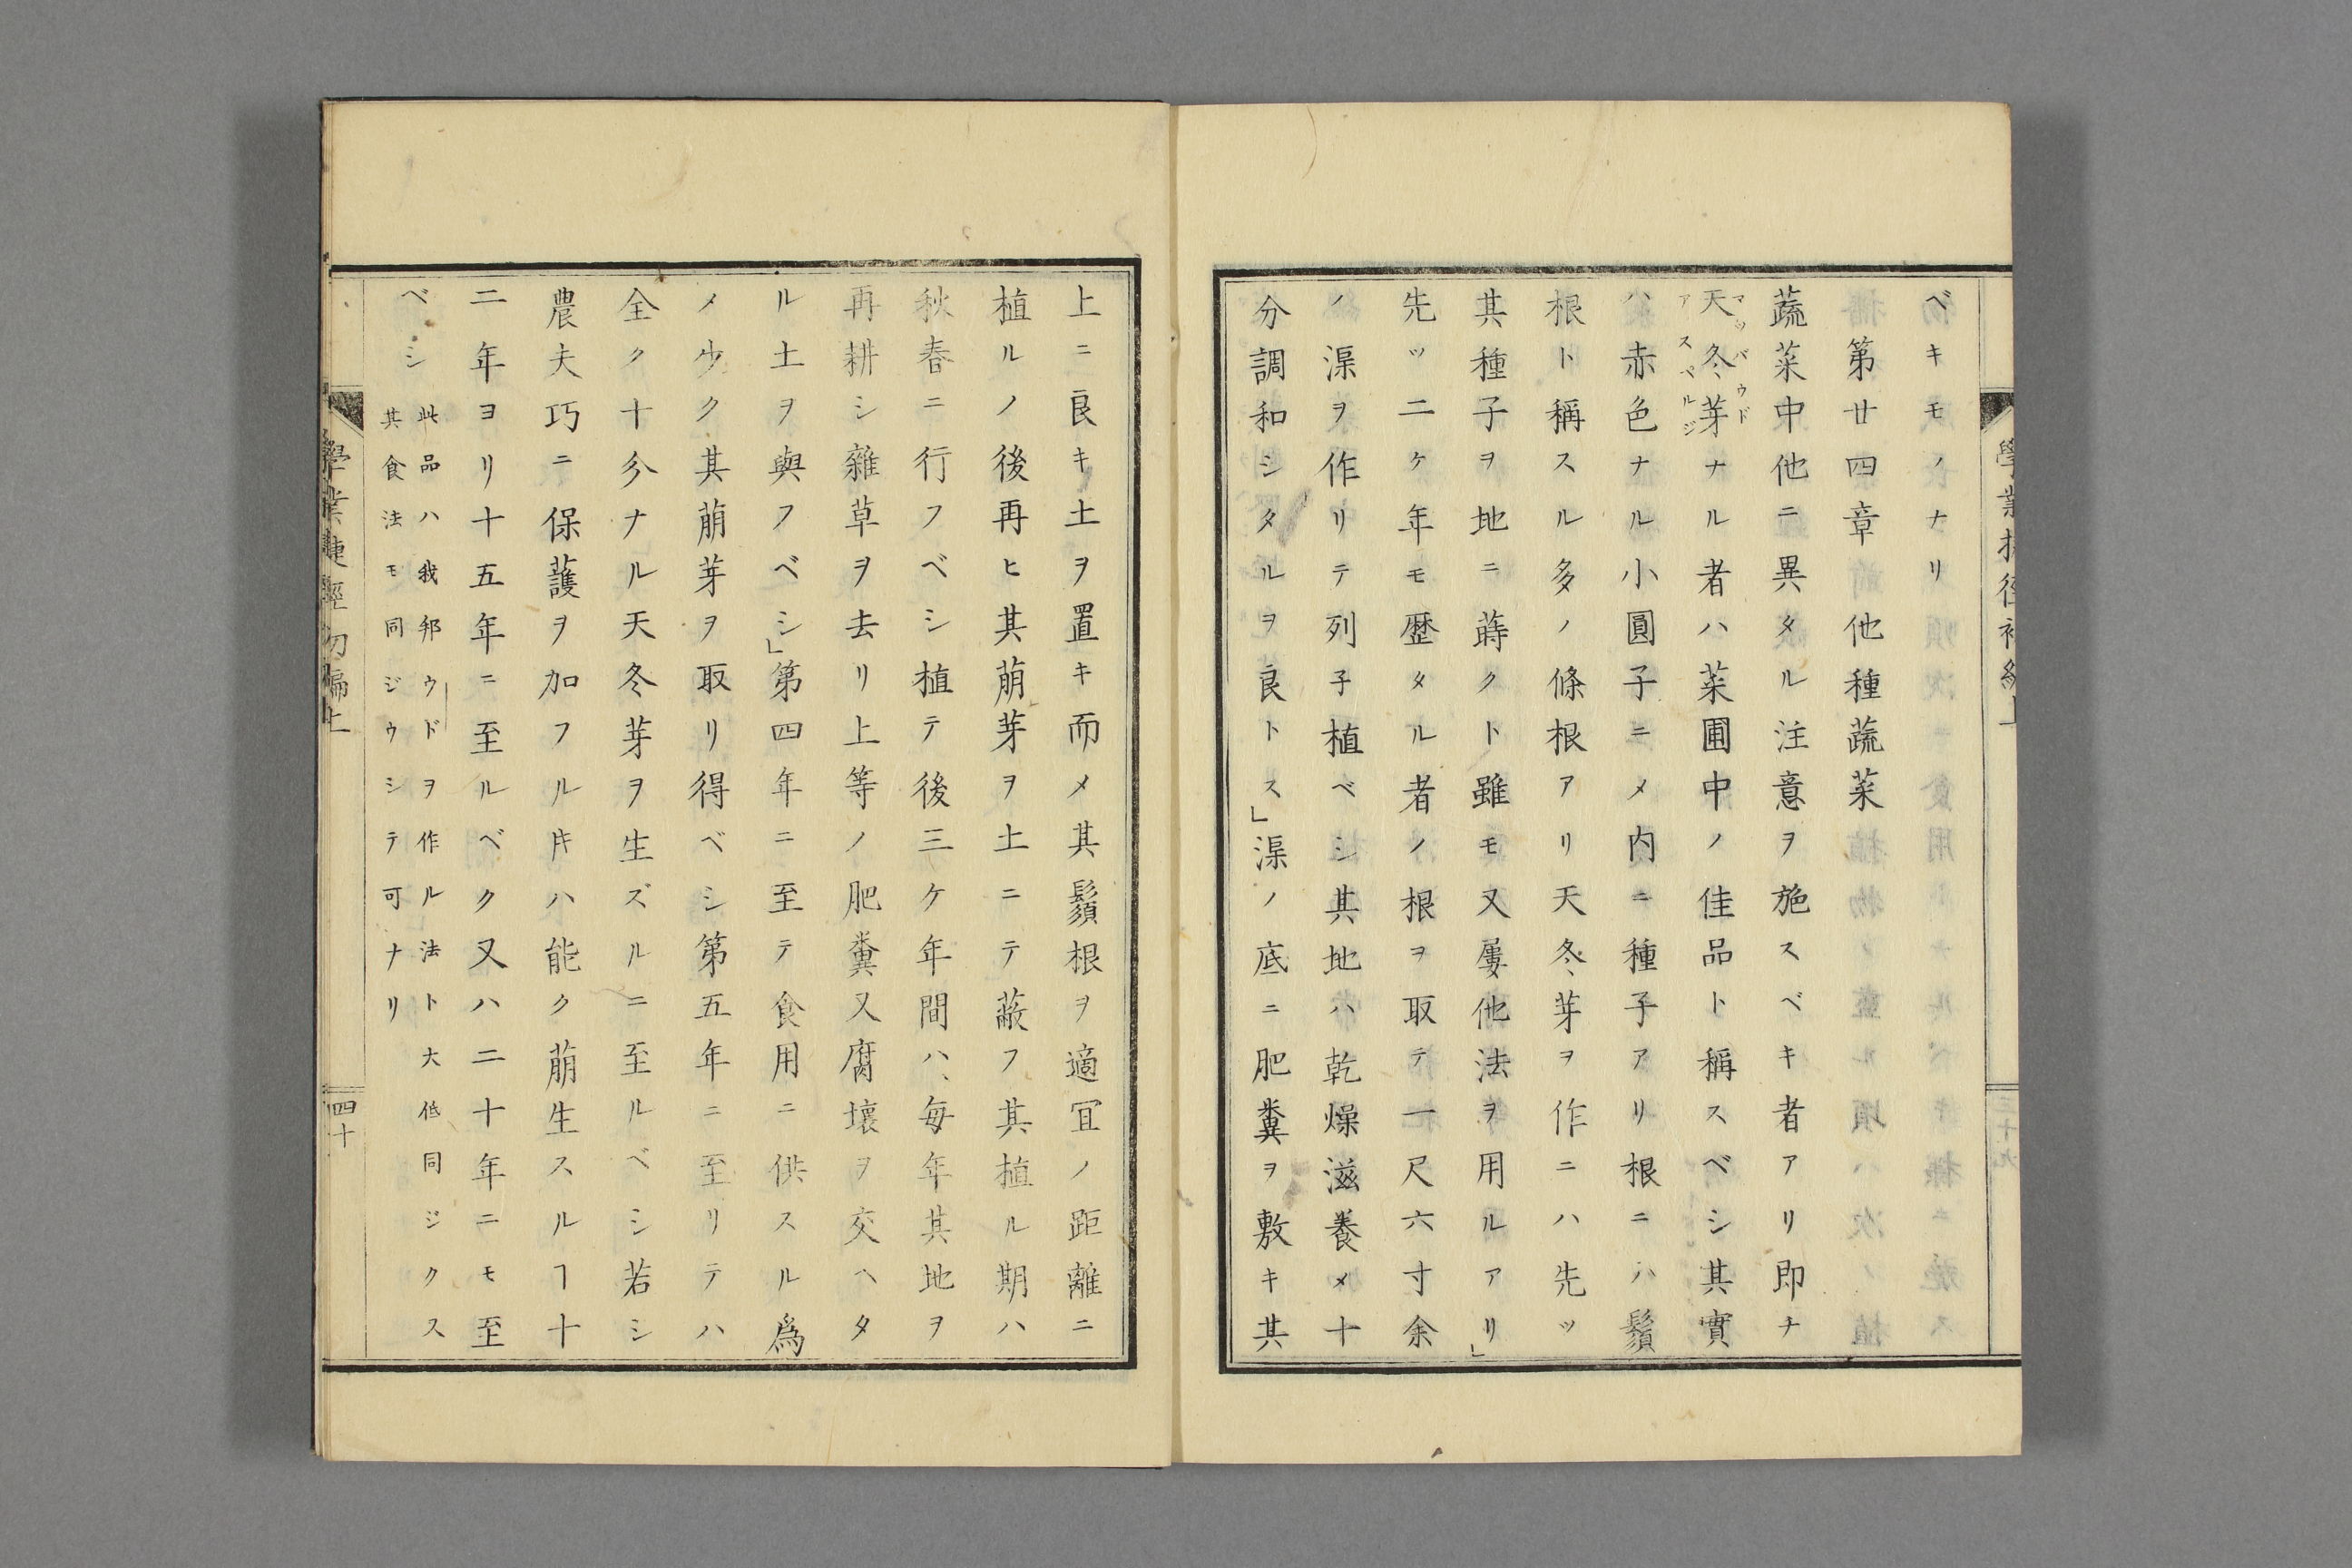 ベキモノナリ
第廿四章 他種蔬菜
蔬菜中他ニ異タル注意ヲ施スベキ者アリ即チ
マツバウド
天冬芽ナル者ハ菜圃中ノ佳品ト稱スベシ其實
アスペルジ
ハ赤色ナル小圓子ニメ内ニ種子アリ根ニハ鬚
根ト稱スル多ノ條根アリ天冬芽ヲ作ニハ先ッ
其種子ヲ地ニ蒔クト雖モ又屢他法ヲ用ルアリ」
先ッ二ケ年モ歷タル者ノ根ヲ取テ一尺六寸余
ノ渠ヲ作リテ列子植ベシ其地ハ乾燥滋養メ十
分調和シタルヲ良トス」渠ノ底ニ肥糞ヲ敷キ其
三十九
上ニ良キ土ヲ置キ而メ其鬚根ヲ適冝ノ距離ニ
植ルノ後再ヒ其萠芽ヲ土ニテ蔽フ其植ル期ハ
秋春ニ行フベシ植テ後三ケ年間ハ每年其地ヲ
再耕シ雜草ヲ去リ上等ノ肥糞又腐壞ヲ交ヘタ
ル土ヲ與フベシ」第四年ニ至テ食用ニ供スル爲
メ少ク其萠芽ヲ取リ得ベシ第五年ニ至リテハ
全ク十分ナル天冬芽ヲ生ズルニ至ルベシ若シ
農夫巧ニ保護ヲ加フル片ハ能ク萠生スルヿ十
二年ヨリ十五年ニ至ルベク又ハ二十年ニモ至
ベシ
此品ハ我邦ウドヲ作ル法ト大低同ジクス
其食法モ同ジウシテ可ナリ
學業捷徑初編上
四十